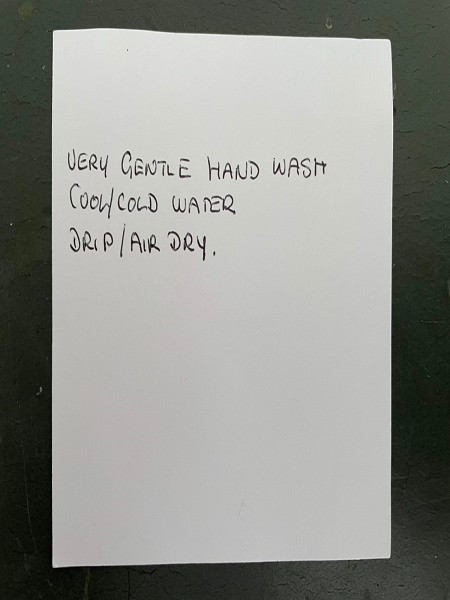 VERY GENTLE HAND WASH
COOL/COLD WATER
DRIP/AIR DRY.